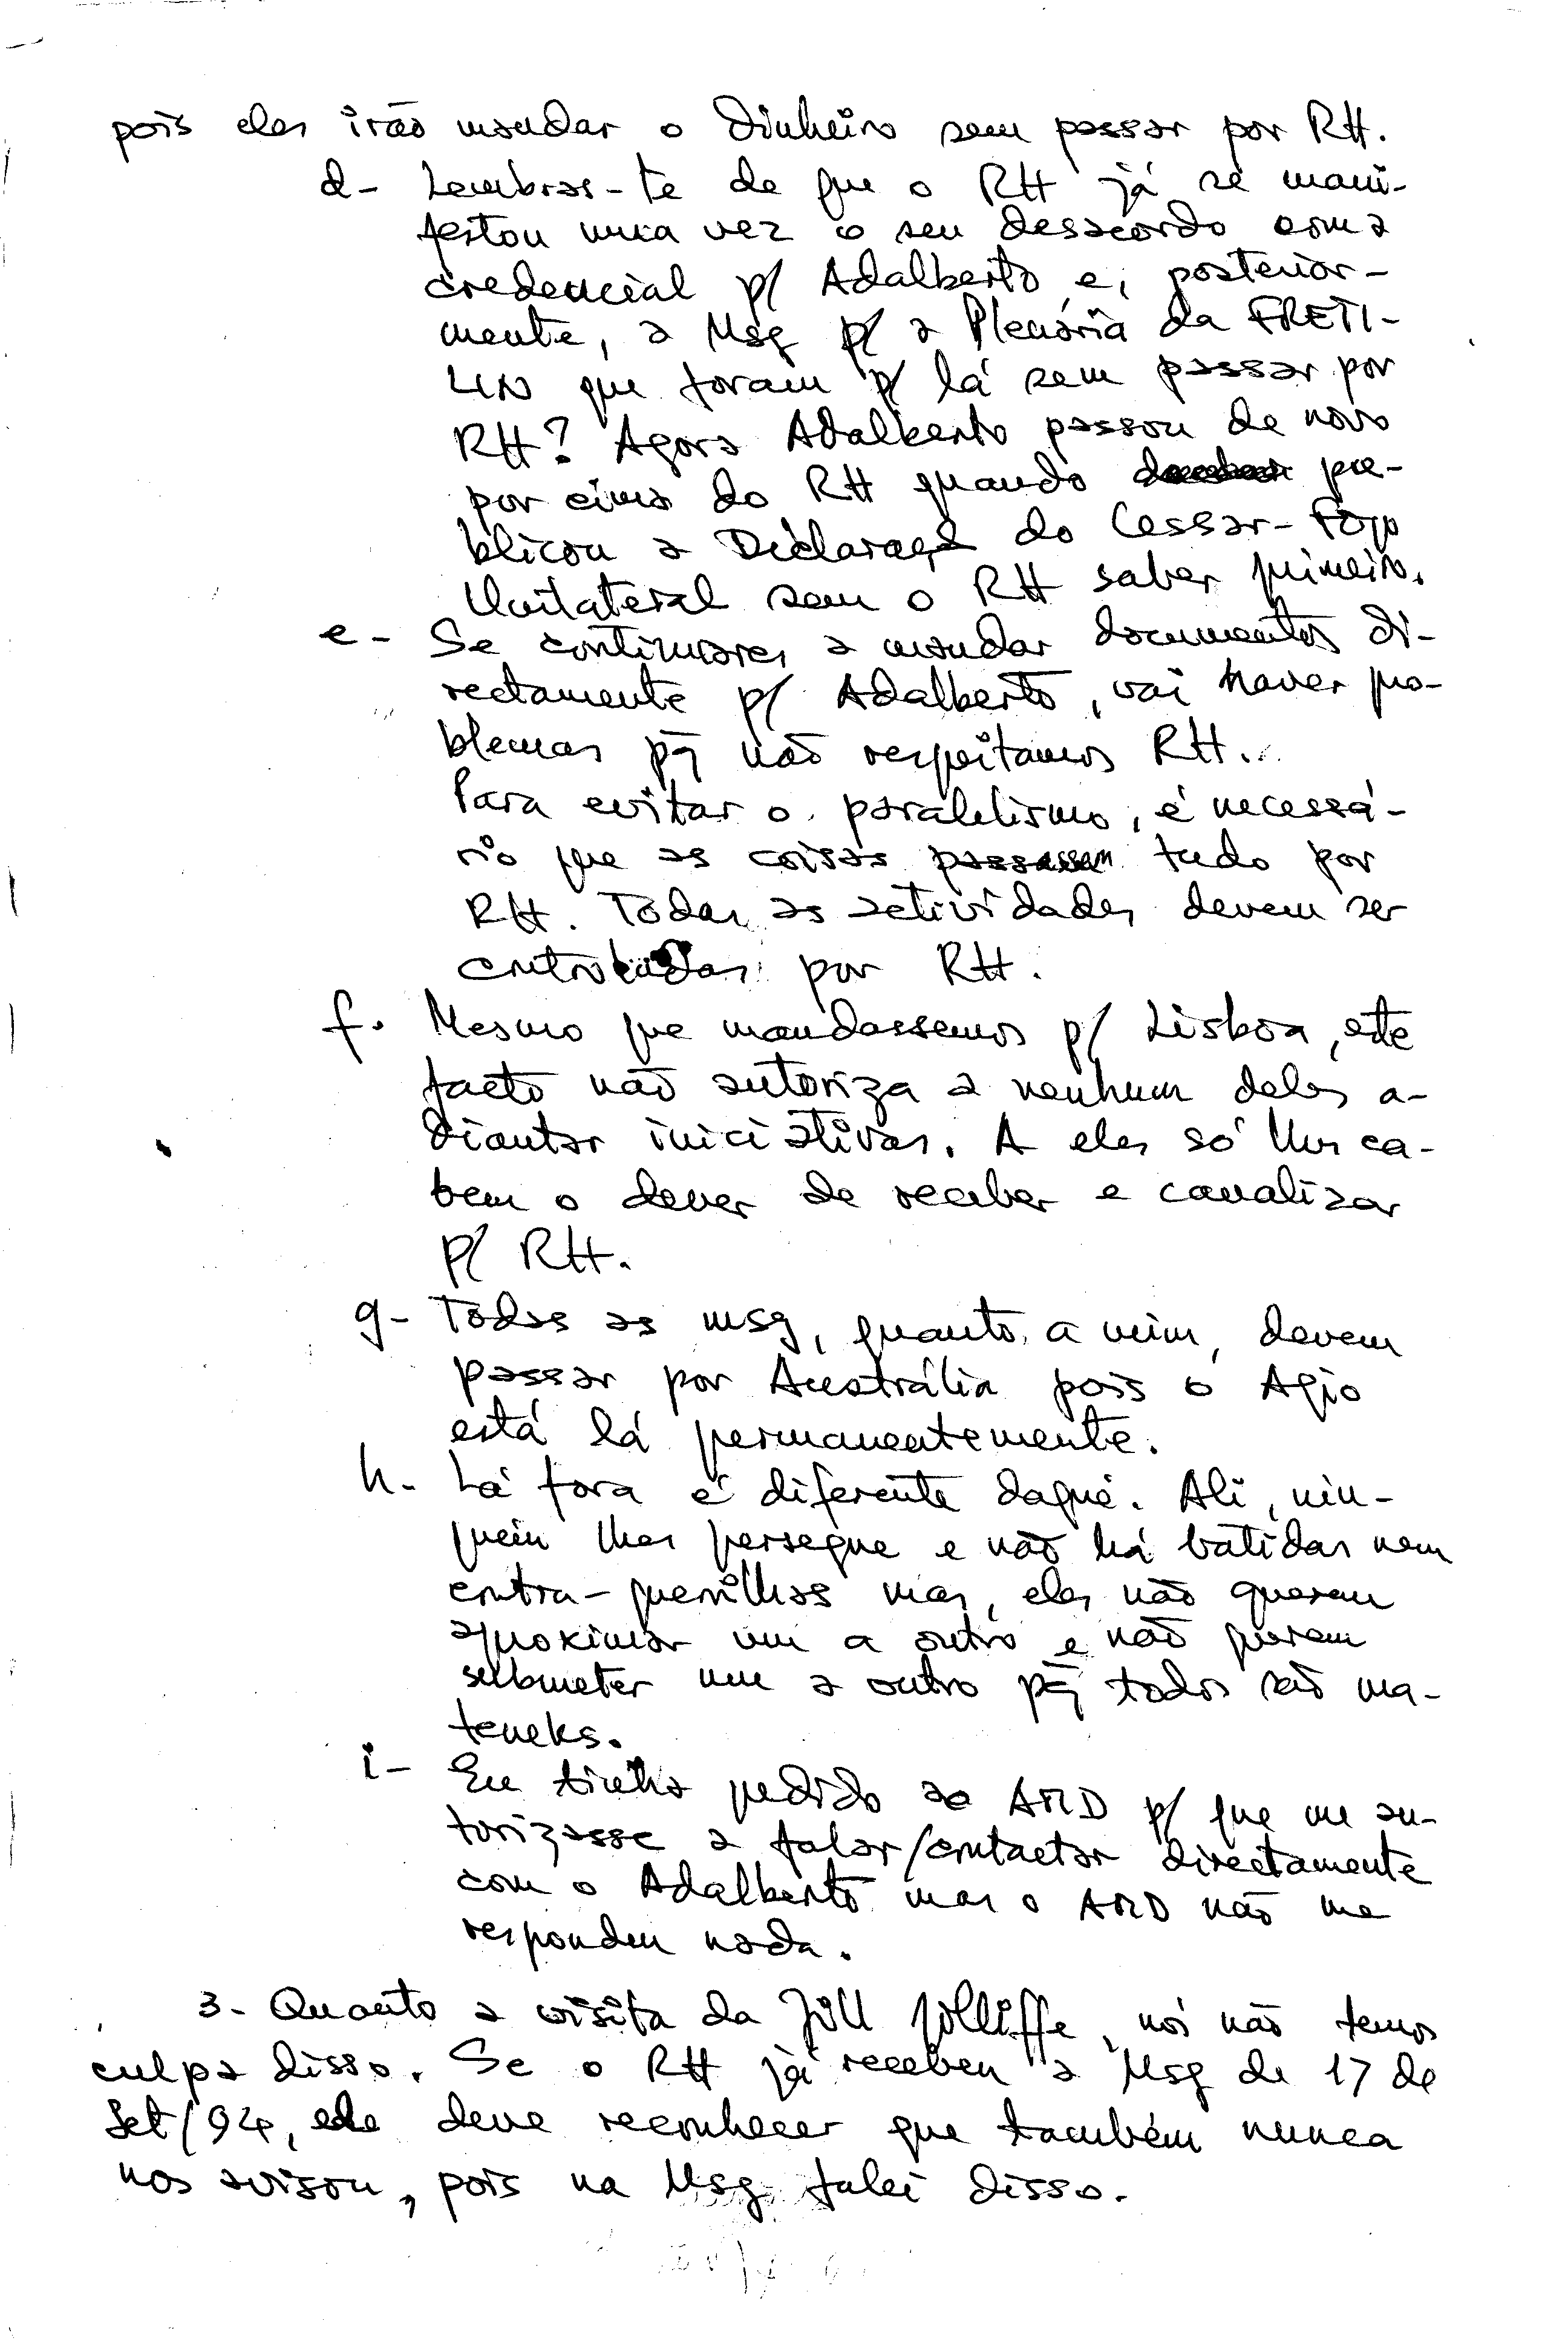 pois eles irão mandar o dinheiro sem passar por RH.
d- Lembras-te de que o RH já se mani-
festou uma vez o seu desacordo com a
credencial p/ Adalberto e, posterior-
mente, a Msg p/ a Plenária da FRETI-
LIN que foram p/ lá sem passar por
RH? Agora Adalberto passou de novo
por cima do RH quando pu-
blicou a Declaraçã do Cessar-Fogo
Unilateral sem o RH saber primeiro.
e- Se continuares a mandar documentos di-
rectamente p/ Adalberto, vai haver pro-
blemas pq não respeitamos RH...
Para evitar o paralelismo, é necessá-
rio que as coisas passassem tudo por
RH. Todas as actividades devem ser
controladas por RH.
f. Mesmo que mandassemos p/ Lisboa, este
facto não autoriza a nenhum deles a-
diantar iniciativas. A eles só lhes ca-
bem o dever de receber e canalizar
p/ RH.
g- Todas as msg, quanto a mim, devem
passar por Austrália pois o Agio
está lá permanentemente.
h- Lá fora é diferente daqui. Ali, nin-
guém lhes persegue e não há batidas nem
contra-guerrilhas mas, eles não querem
aproximar um a outro e não querem
submeter um a outro pq todos são ma-
teneks.
i- Eu tinha pedido ao AMD p/ que me au-
torizasse a falar/contactar directamente
com o Adalberto mas o AMD não me
respondeu nada.
3- Quanto a visita da Jill Jolliffe, nós não temos
culpa disso. Se o RH já recebeu a Msg de 17 de
Set/94, ele deve reconhecer que também nunca
nos avisou, pois na Msg falei disso.